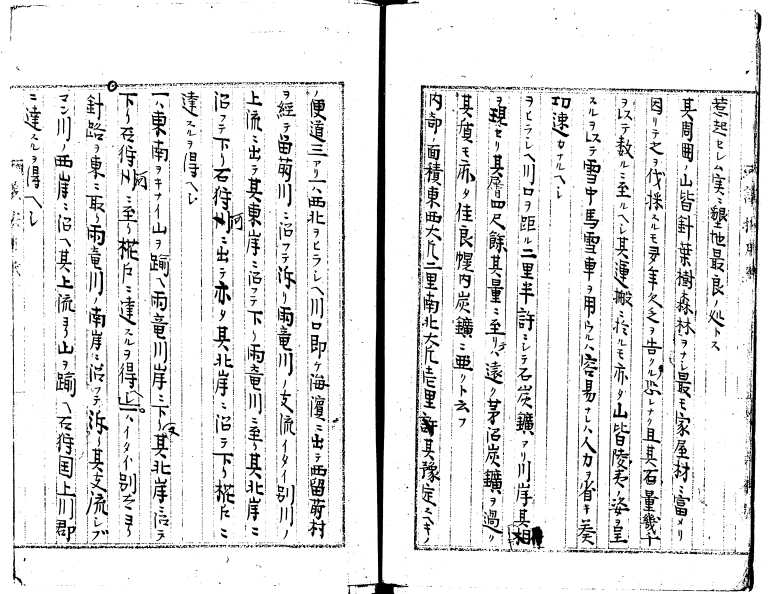 惹起セシム実ニ墾地最良ノ処トス
其周囲ノ山皆針葉樹森林ヲナシ最モ家屋材ニ富メリ
因リテ之ヲ伐採スルモ多年欠乏ヲ告クル恐レナク且其石量幾十
ヲ以テ数ルニ至ルヘシ其運搬ニ於ルモ亦タ山皆陵夷ノ姿ヲ呈
スルヲ以テ雪中馬雪車ヲ用ウルハ容易ナレハ人力ヲ省キ奏
功速カナルヘシ
ヲヒラシヘ川口ヲ距ル二里半許ニシテ石炭鑛アリ川岸其
ヲ現セリ其層四尺餘其量ニ至リテハ遠ク茅沼炭鑛ヲ過ク
其質モ亦タ佳良幌内炭鑛ニ亜クト云フ
内部ノ面積東西大凡二里南北大凡壱里許其豫定スヘキ
ノ便道三アリ一ハ西北ヲヒラシヘ川口即ケ海濱ニ出テ西留萌村
ヲ経テ留萌川ニ沿フテ泝リ雨竜川ノ支流イタイ別川ノ
上流ニ出テ其東岸ニ沿フテ下リ雨竜川ニ至リ其北岸ニ
沿フテ下リ石狩河ニ出テ亦タ其北岸ニ沿テ下リ椛戸ニ
達スルヲ得ヘシ
一ハ東南ヲキナイ山ヲ踰ヘ雨竜川岸ニ下リ其北岸ニ沿テ
下リ石狩河ニ至リ椛戸ニ達スルヲ得ヘシ一ハイタイ別ヨリ
針路ヲ東ニ取リ雨竜川ノ南岸ニ沿フテ泝リ其支流シブ
マン川ノ西岸ニ沿ヘ其上流ヨリ山ヲ踰ヘ石狩国上川郡
ニ達スルヲ得ヘシ